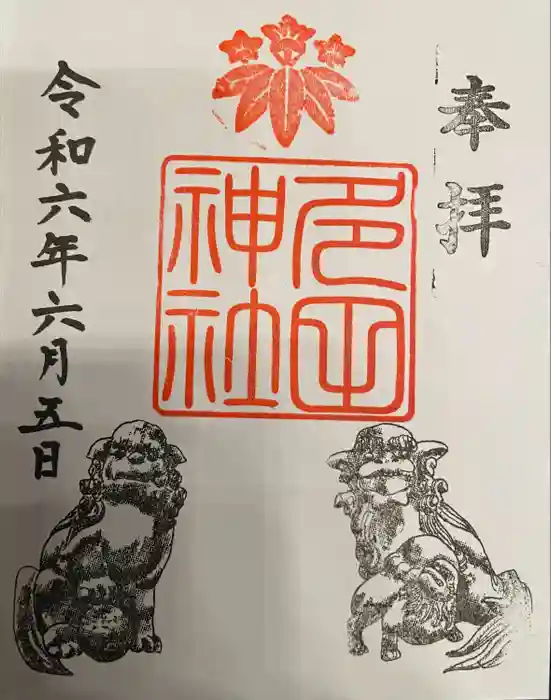 奉拝
多田神社
令和六年六月五日